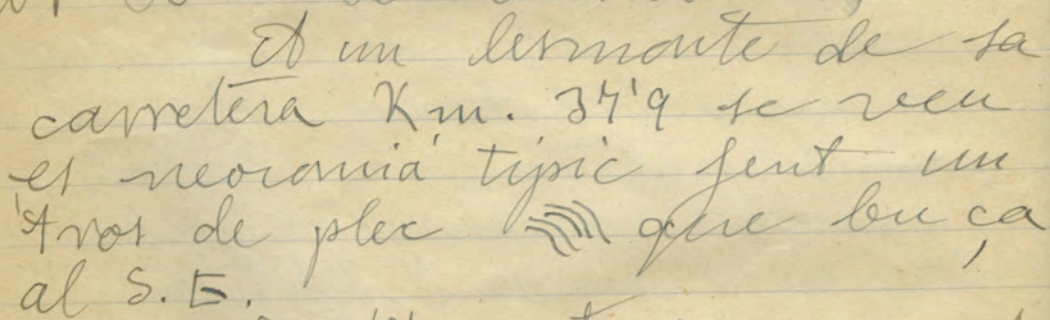 A un desmonte de sa
carretera Km. 37'9 se veu
es neocomià típic fent un
tros de plec que buça
al S. E.